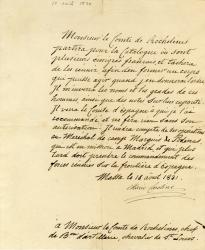 Monsieur le Comte de Rochelines
partira pour la Catalogne où sont
plusieurs émigrés français, et tâchera
de les réunir afin d'en former un corps
qui puisse agir quand j'en donnerai l'ordre.
Il m'enverra les noms et les grades de ces
hommes ainsi que des notes sur leur capacité.
Il verra le Comte d'Espagne à qui je
recommande et ne fera rien sans son
autorisation. Il rendra compte de ses opérations
au Maréchal de camp Marquis
qui est en mission à Madrid et qui plus
tard doit prendre le commandement des
forces réunies sur la frontière d'Espagne.
Massa le 18 août 1831.
Marie Caroline
à Monsieur le Comte de Rochelines, chef
de B.on d'artillerie, chevalier de St Louis